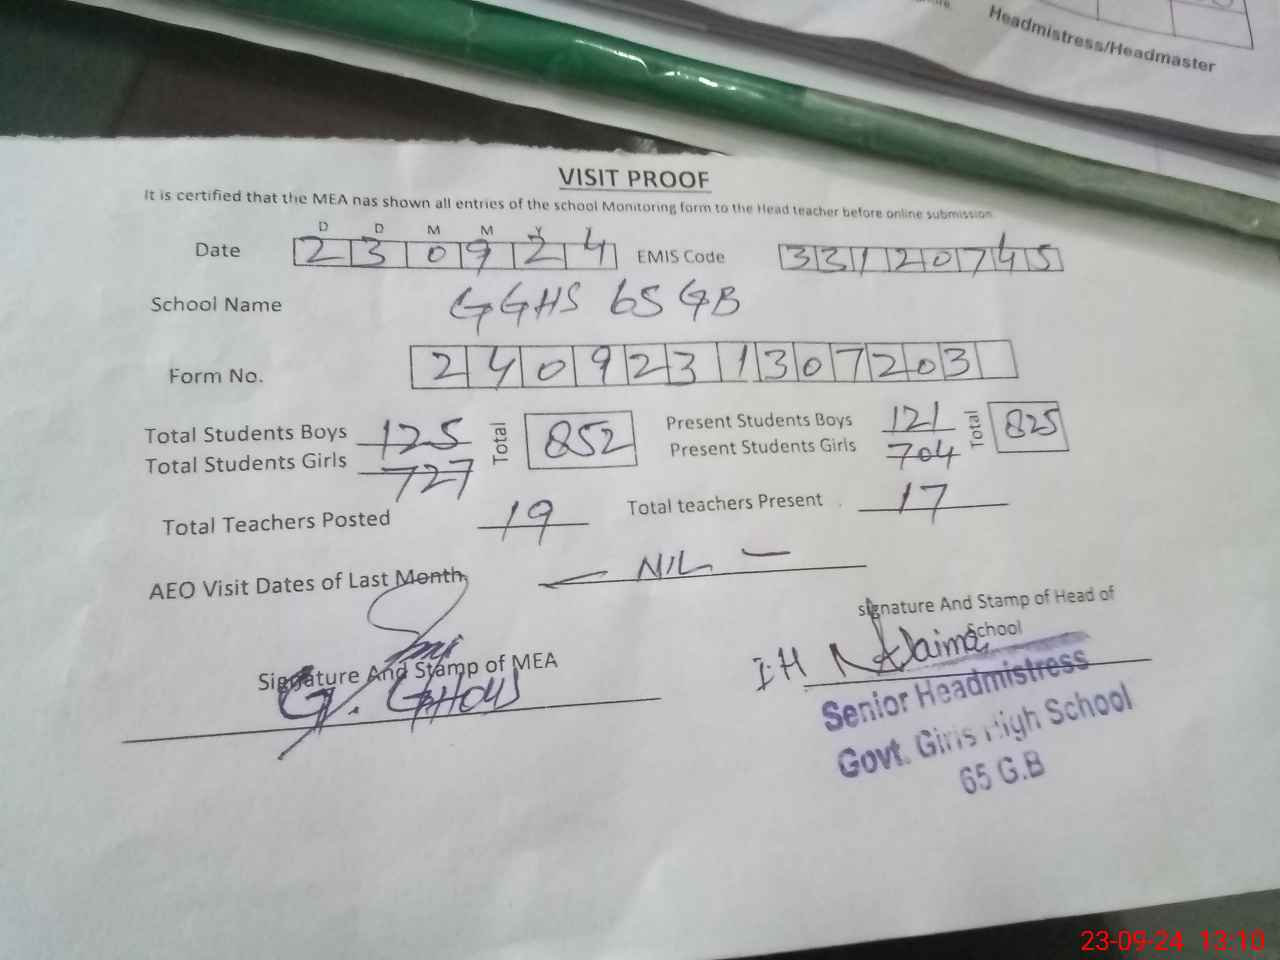 Headmistress/Headmaster
VISIT PROOF
It is certified that the MEA has shown all entries of the school Monitoring form to the Head teacher before online submission
D D M M Y
Date 2 3 0 9 2 4 EMIS Code 3 3 1 2 0 7 4 5
School Name GGHS 65 GB
Form No. 2 4 0 9 2 3 1 3 0 7 2 0 3
Total Students Boys 125 Total 852 Present Students Boys 121 Total 825
Total Students Girls 727 Present Students Girls 704
Total Teachers Posted 19 Total teachers Present 17
AEO Visit Dates of Last Month NIL
Signature And Stamp of Head of School
Signature And Stamp of MEA
G. GHOUS
Senior Headmistress
Govt. Girls High School
65 G.B
23-09-24 13:10